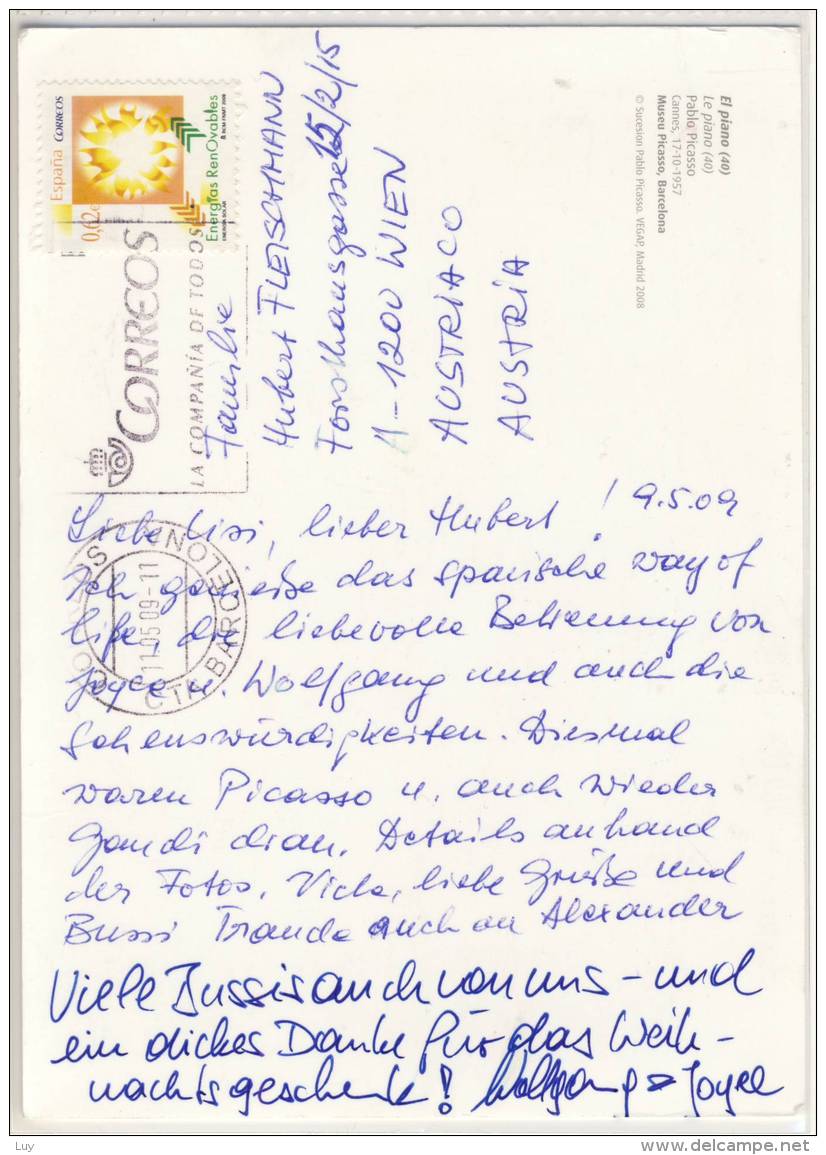 El piano (40)
Le piano (40)
Pablo Picasso
Cannes, 17-10-1957
Museu Picasso, Barcelona
© Sucesion Pablo Picasso. VEGAP, Madrid 2008
España
CORREOS
0,62€
Energías RenOvables
ENERGÍA SOLAR
CORREOS
LA COMPAÑÍA DE TODOS
Familie
Hubert FLEISCHMANN
Forsthausgasse 15/2/15
A-1200 WIEN
AUSTRIACO
AUSTRIA
11-05 09-11
CTA BARCELONA
9.5.09
Liebe Lisi, lieber Hubert!
Ich genieße das spanische way of
life, die liebevolle Betreuung von
Joyce u. Wolfgang und auch die
Sehenswürdigkeiten. Diesmal
waren Picasso u. auch wieder
Gaudi dran. Details anhand
der Fotos. Viele, liebe Grüße und
Bussi Traude auch an Alexander
Viele Bussis auch von uns – und
ein dickes Danke für das Weih-
nachtsgeschenk! Wolfgang & Joyce
Luy
delcampe.net